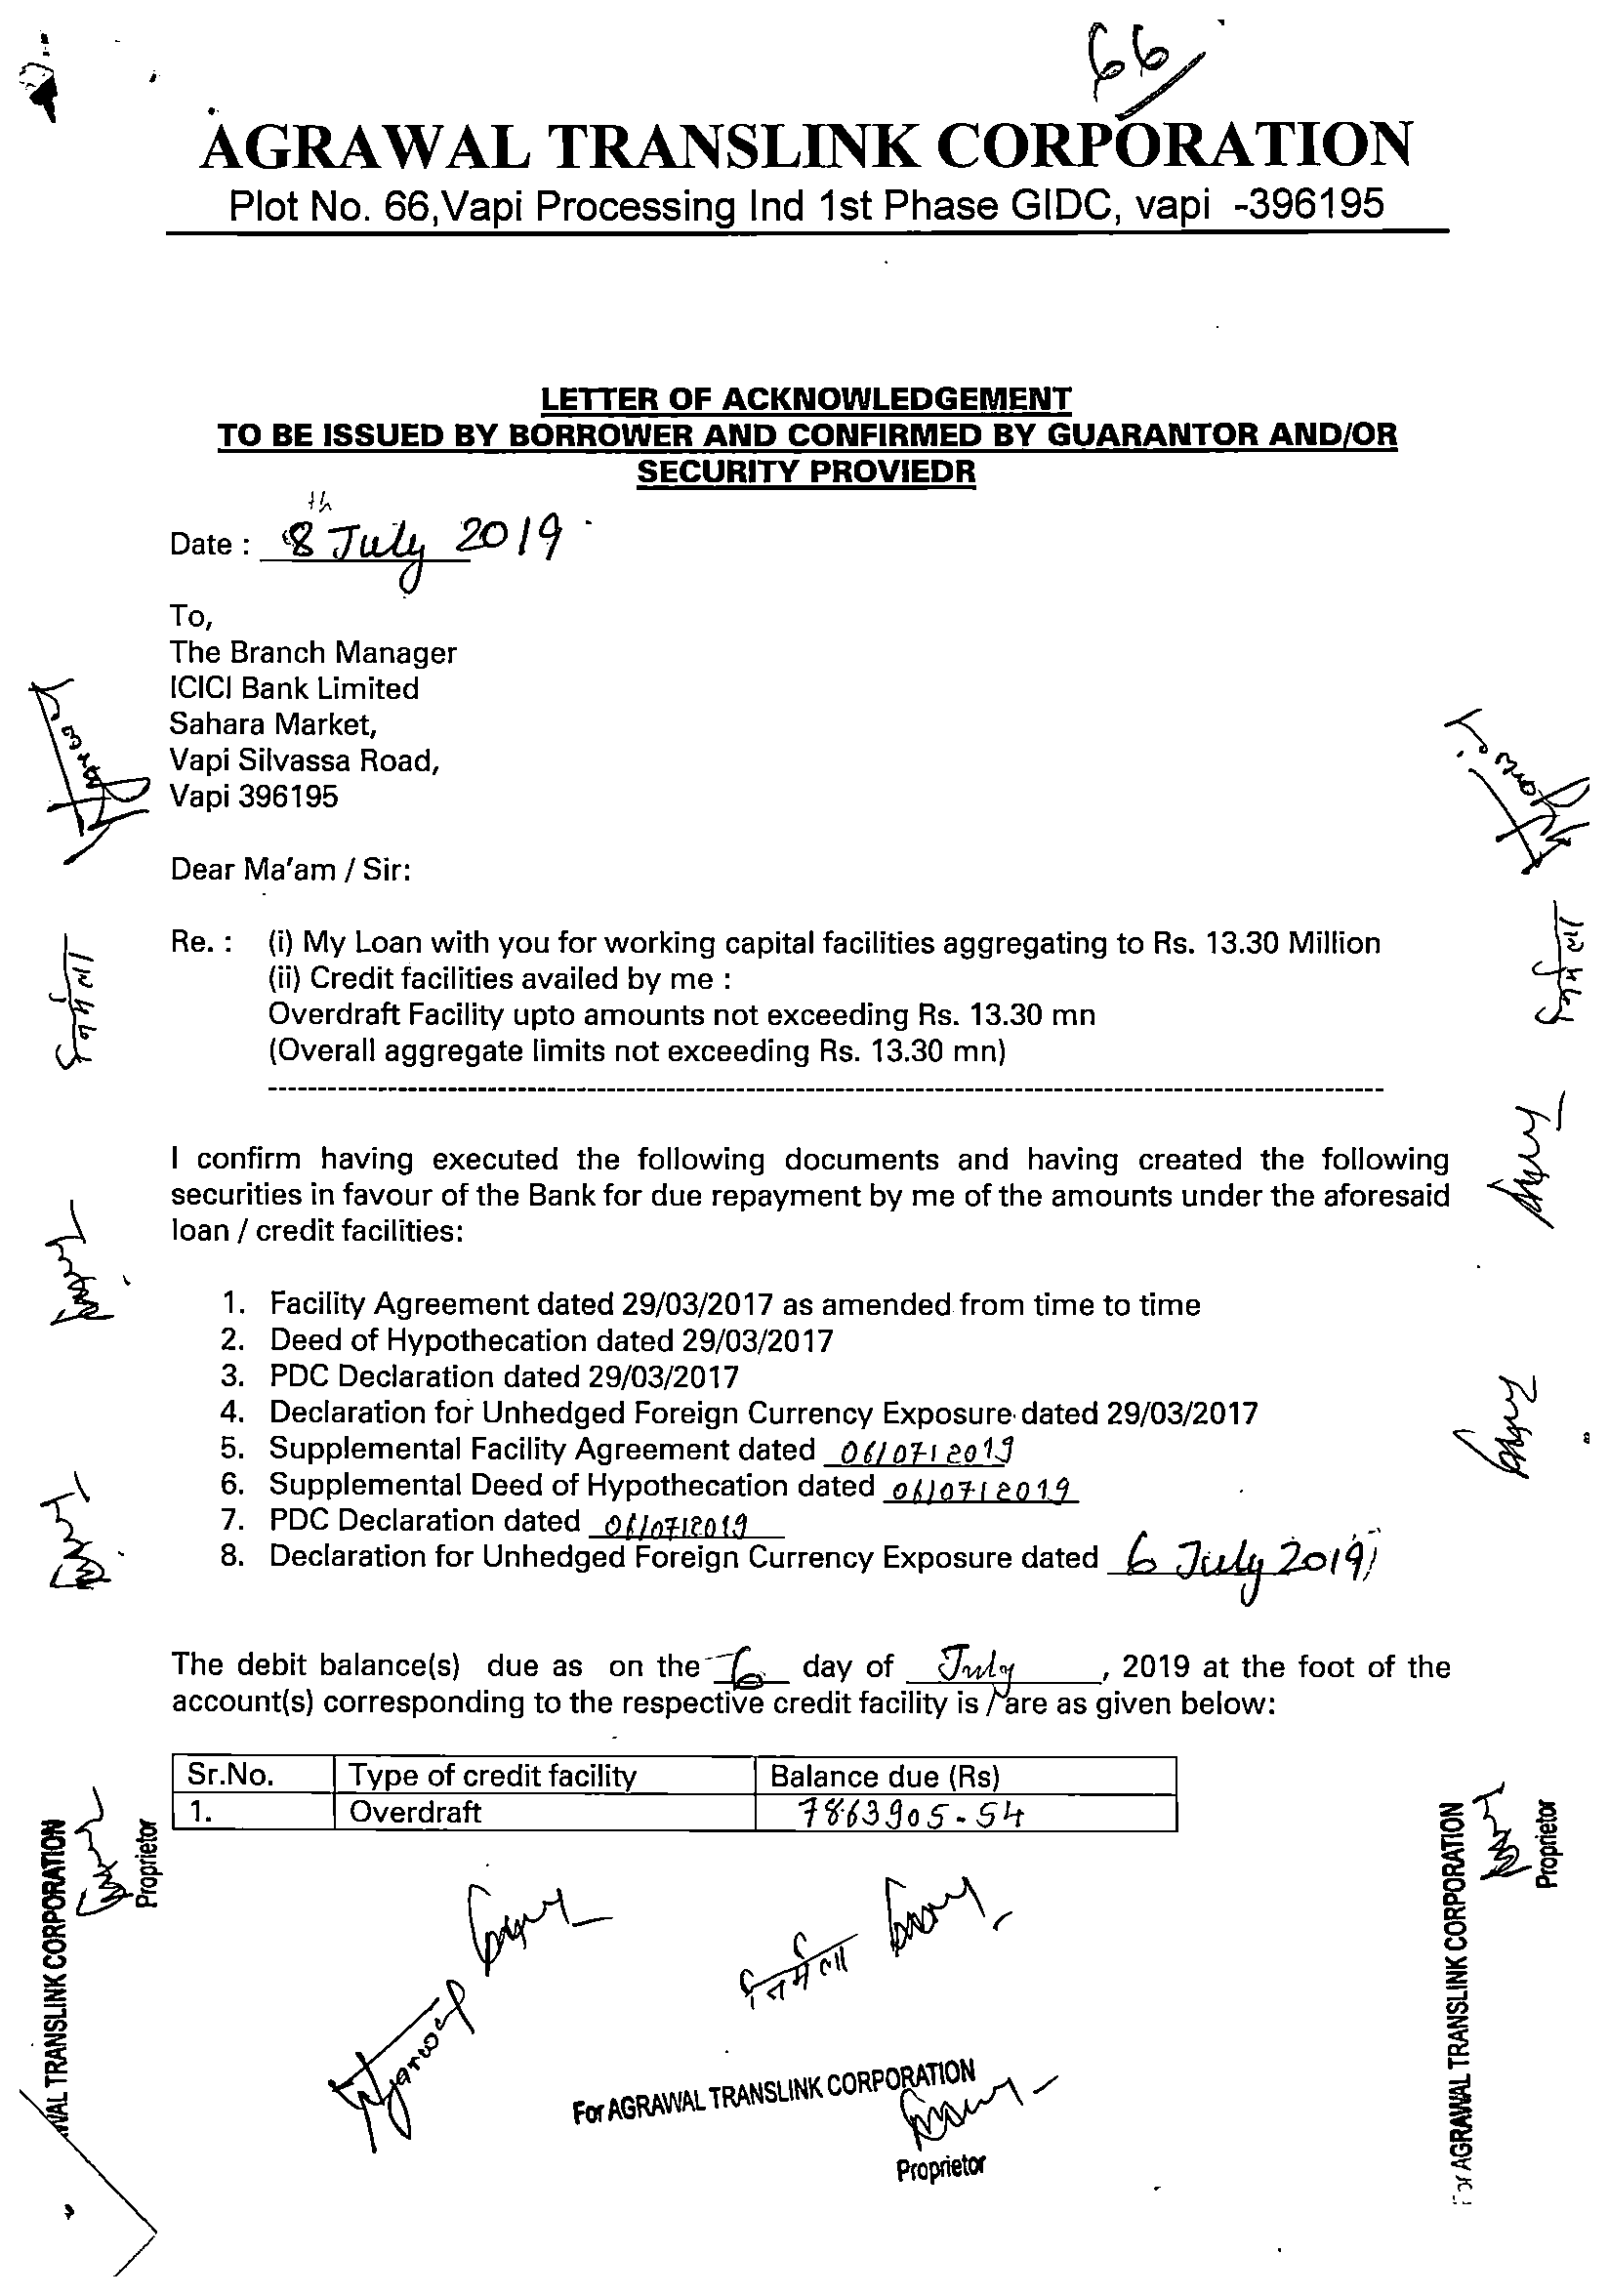 66
AGRAWAL TRANSLINK CORPORATION
Plot No. 66,Vapi Processing Ind 1st Phase GIDC, vapi -396195
LETTER OF ACKNOWLEDGEMENT
TO BE ISSUED BY BORROWER AND CONFIRMED BY GUARANTOR AND/OR
SECURITY PROVIEDR
Date : 8th July 2019
To,
The Branch Manager
ICICI Bank Limited
Sahara Market,
Vapi Silvassa Road,
Vapi 396195
Dear Ma'am / Sir:
Re. : (i) My Loan with you for working capital facilities aggregating to Rs. 13.30 Million
(ii) Credit facilities availed by me :
Overdraft Facility upto amounts not exceeding Rs. 13.30 mn
(Overall aggregate limits not exceeding Rs. 13.30 mn)
I confirm having executed the following documents and having created the following
securities in favour of the Bank for due repayment by me of the amounts under the aforesaid
loan / credit facilities:
1. Facility Agreement dated 29/03/2017 as amended from time to time
2. Deed of Hypothecation dated 29/03/2017
3. PDC Declaration dated 29/03/2017
4. Declaration for Unhedged Foreign Currency Exposure dated 29/03/2017
5. Supplemental Facility Agreement dated 06/07/2019
6. Supplemental Deed of Hypothecation dated 06/07/2019
7. PDC Declaration dated 06/07/2019
8. Declaration for Unhedged Foreign Currency Exposure dated 6 July 2019
The debit balance(s) due as on the 6 day of July, 2019 at the foot of the
account(s) corresponding to the respective credit facility is / are as given below:
Sr.No. Type of credit facility Balance due (Rs)
1. Overdraft 7863905.54
निर्मला
For AGRAWAL TRANSLINK CORPORATION
Proprietor
निर्मला
WAL TRANSLINK CORPORATION
Proprietor
निर्मला
For AGRAWAL TRANSLINK CORPORATION
Proprietor